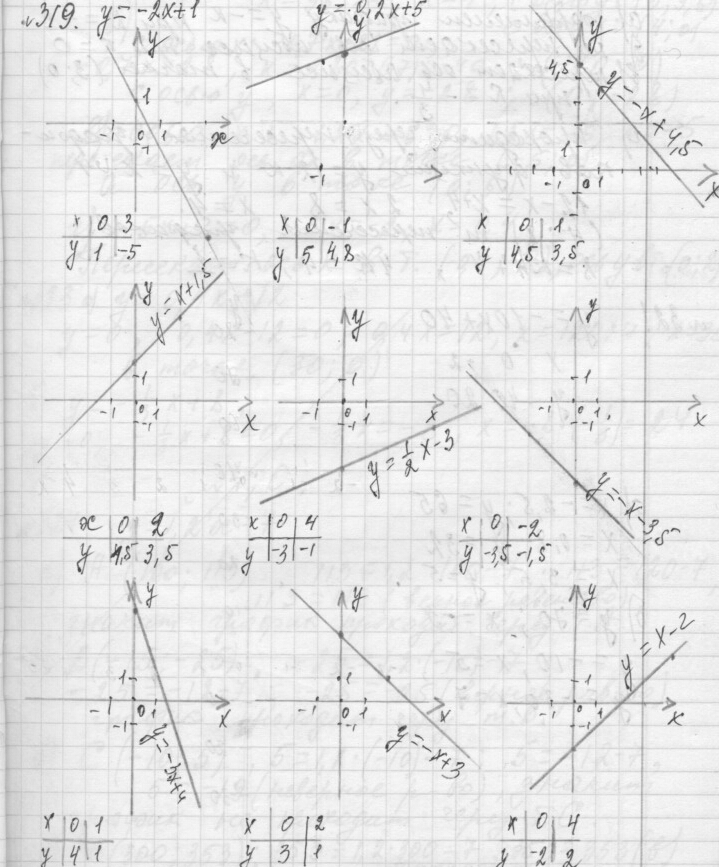 №319. y=-2x+1 y=0,2x+5
y y y
4,5
y=-x+4,5
1 1
-1 0 1 x -1 -1 0 1 x
-1 -1
x 0 3 x 0 -1 x 0 1
y 1 -5 y 5 4,8 y 4,5 3,5
y y=x+1,5 y y
1 1 1
-1 0 1 x -1 0 1 x -1 0 1 x
-1 -1 -1
y=1/2x-3 y=-x-3,5
x 0 2 x 0 4 x 0 -2
y 1,5 3,5 y -3 -1 y -3,5 -1,5
y y y y=x-2
1 1 1
-1 0 1 x -1 0 1 x -1 0 1 x
-1 -1 -1
y=-3x+4 y=-x+3
x 0 1 x 0 2 x 0 4
y 4 1 y 3 1 y -2 2